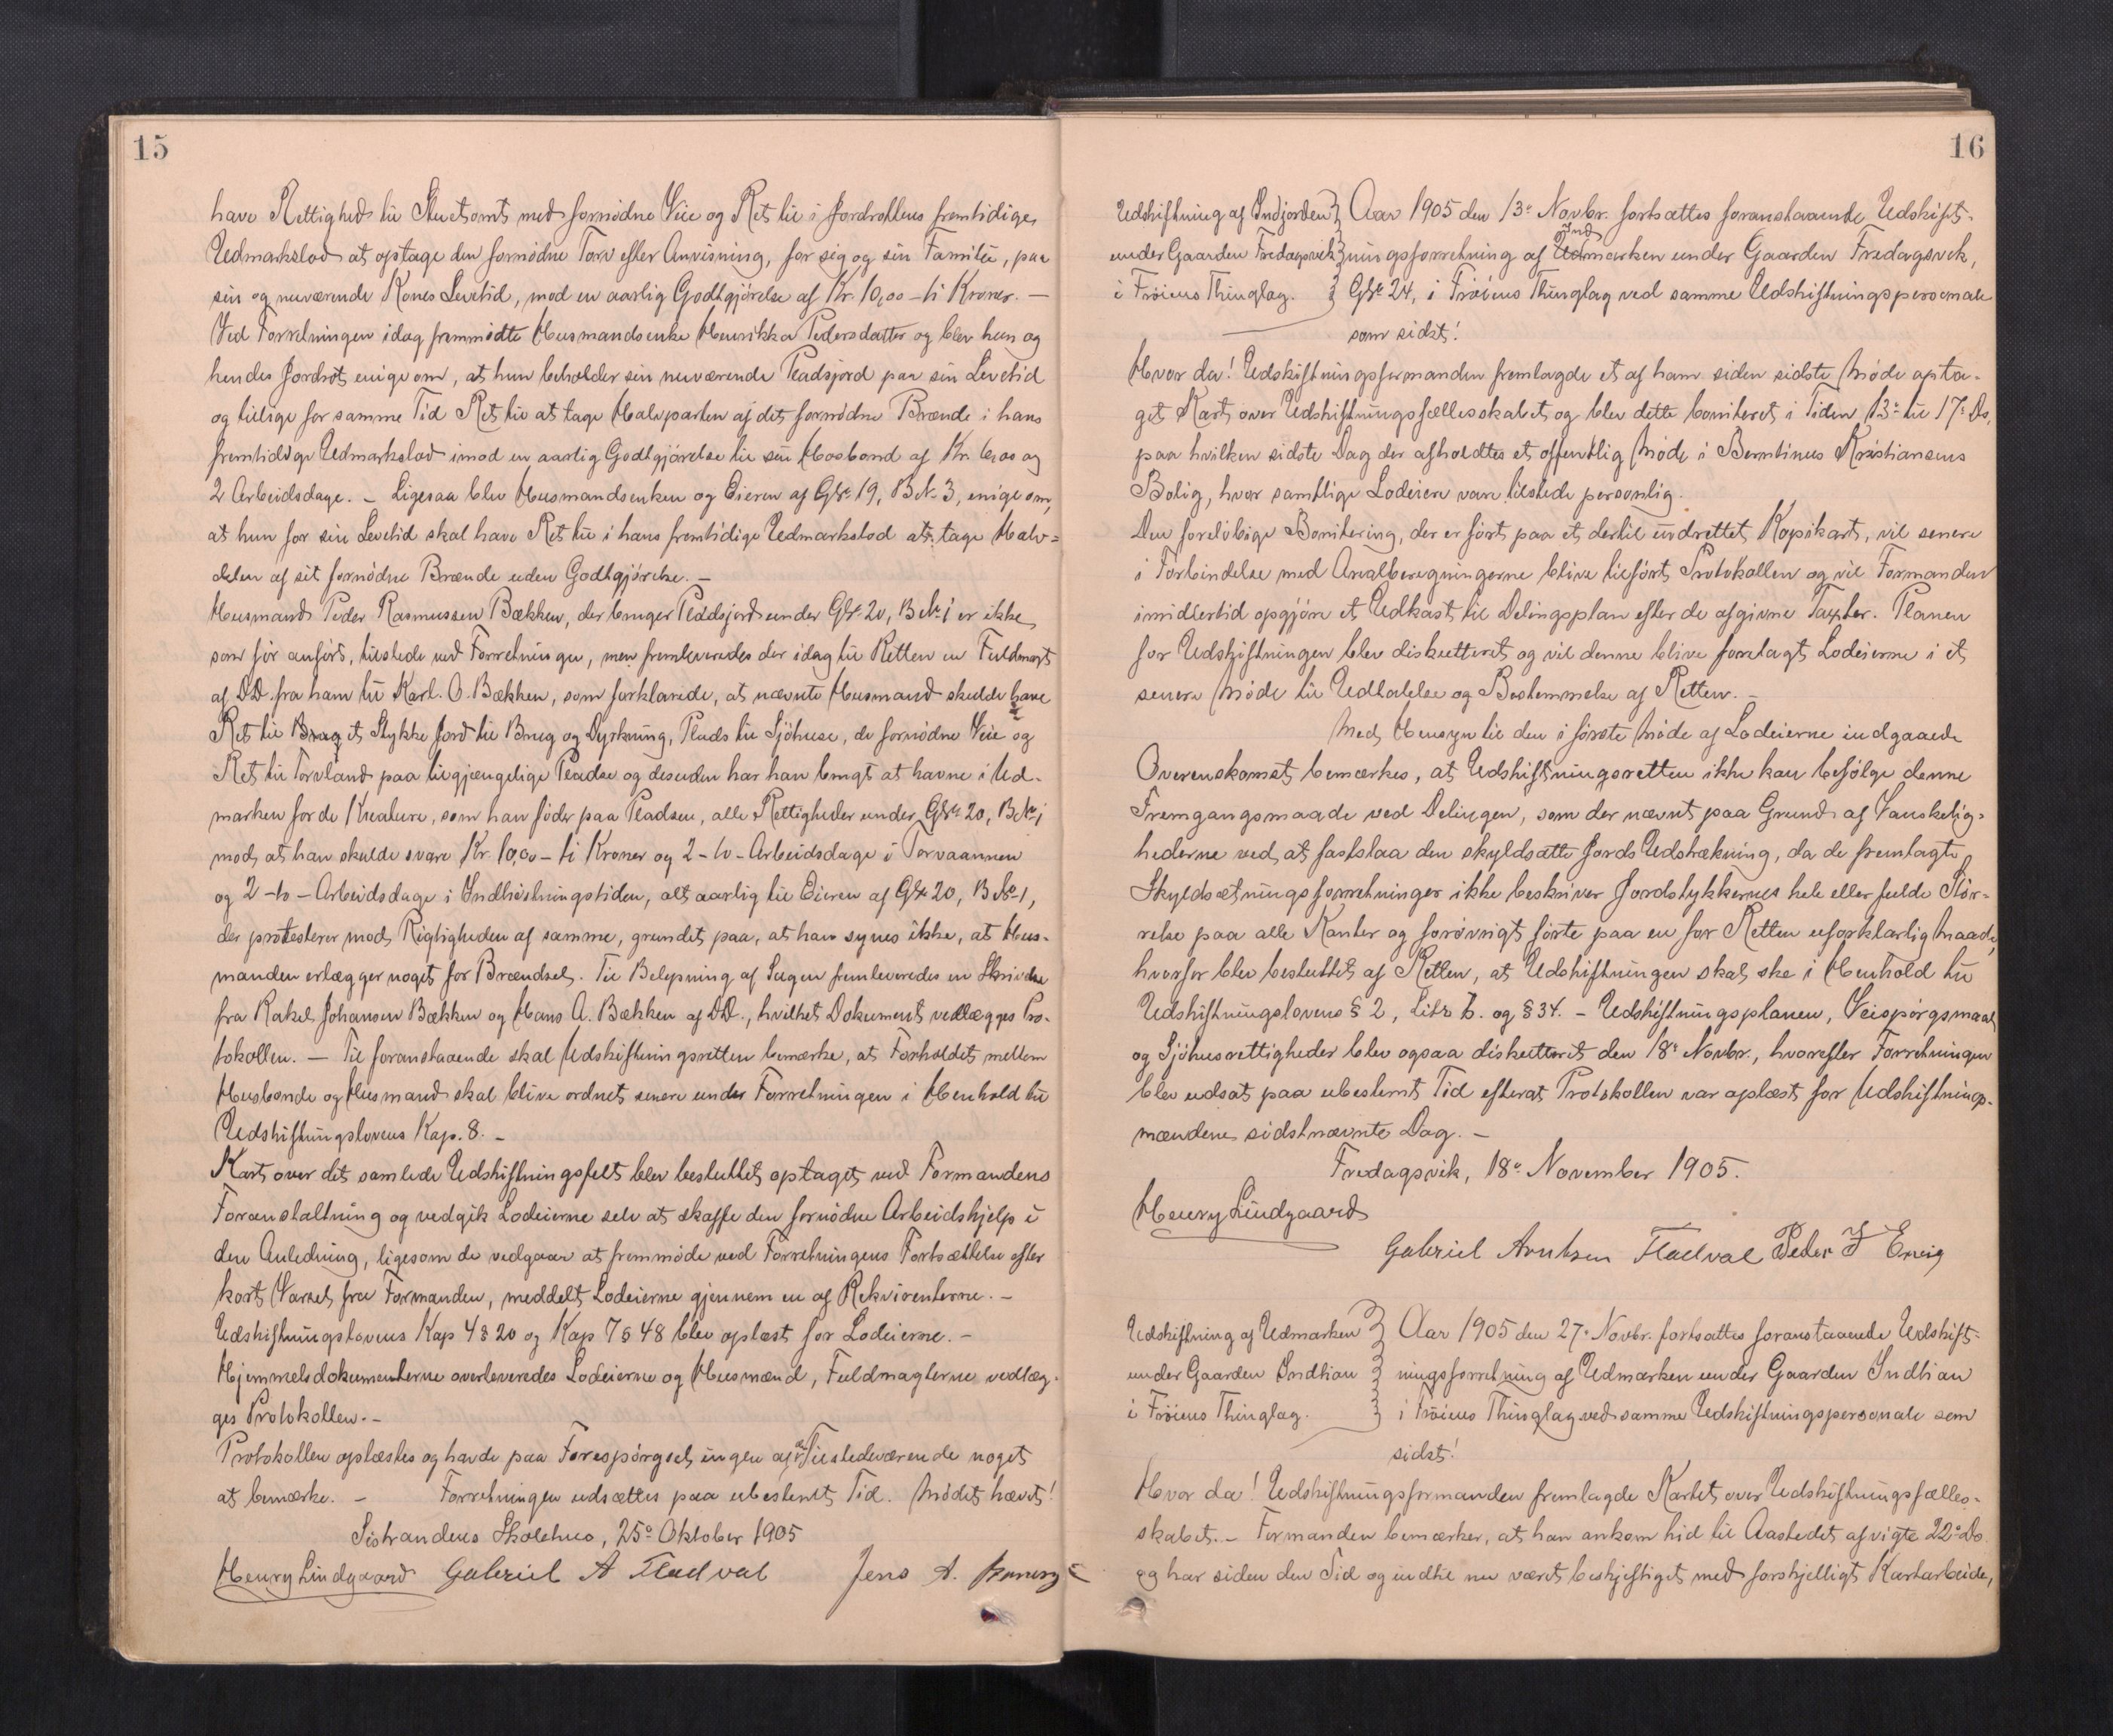 15
have Rettighed til Stuetomt med fornödne Veie og Ret til i Jordrottens fremtidige
Udmarkslod at optage den fornödne Torv efter Anvisning, for sig og sin Familie, paa
sin og nuværende Kones Levetid, mod en aarlig Godtgjörelse af Kr. 10,00 - ti Kroner. —
Ved Forretningen idag fremmödte Husmandsenke Henrikka Pedersdatter og blev hun og
hendes Jordrot enige om, at hun beholder sin nuværende Pladsjord paa sin Levetid
og tillige for samme Tid Ret til at tage Halvparten af det fornödne Brænde i hans
fremtidige Udmarkslod imod en aarlig Godtgjörelse til sin Hosbond af Kr. 6,00 og
2 Arbeidsdage. - Ligesaa blev Husmandsenken og Eieren af G№ 19, B№ 3, enige om,
at hun for sin Levetid skal have Ret til i hans fremtidige Udmarkslod at tage Halv=
delen af sit fornödne Brænde uden Godtgjörelse. -
Husmand Peder Rasmussen Bækken, der bruger Pladsjord under G№ 20, B№ 1 er ikke
som för anfört, tilstede ved Forretningen, men fremleveredes der idag til Retten en Fuldmagt
af DD. fra ham til Karl. O. Bækken, som forklarede, at nævnte Husmand skulde have
Ret til Brug et Stykke Jord til Brug og Dyrkning, Plads til Sjöhuse, de fornödne Veie og
Ret til Torvland paa tilgjængelige Pladse og desuden har han brugt at havne i Ud-
marken for de Kreature, som han föder paa Pladsen, alle Rettigheder under G№ 20, B№ 1
mod, at han skulde svare Kr. 10,00 - ti Kroner og 2 - to - Arbeidsdage i Torvaannen
og 2 - to - Arbeidsdage i Indhöstningstiden, alt aarlig til Eieren af G№ 20, B№ 1,
der protesterer mod Rigtigheden af samme, grundet paa, at han synes ikke, at Hus-
manden erlægger noget for Brændsel. Til Belysning af Sagen fremleveredes en Skrivelse
fra Rakel Johansen Bækken og Hans A. Bækken af DD., hvilket Dokument vedlægges Pro-
tokollen. — Til foranstaaende skal Udskiftningsretten bemærke, at Forholdet mellem
Husbonde og Husmand skal blive ordnet senere under Forretningen i Henhold til
Udskiftningslovens Kap. 8. -
Kart over det samlede Udskiftningsfelt blev besluttet optaget ved Formandens
Foranstaltning og vedgik Lodeierne selv at skaffe den fornödne Arbeidshjelp i
den Anledning, ligesom de vedgaar at fremmöde ved Forretningens Fortsættelse efter
kort Varsel fra Formanden, meddelt Lodeierne gjennem en af Rekvirenterne. -
Udskiftningslovens Kap 4 § 20 og Kap 7 § 48 blev oplæst for Lodeierne. -
Hjemmelsdokumenterne overleveredes Lodeierne og Husmænd, Fuldmagterne vedlæg-
ges Protokollen. -
Protokollen oplæstes og havde paa Forespörgsel ingen af de Tilstedeværende noget
at bemærke. - Forretningen udsættes paa ubestemt Tid. Mödet hævet!
Sistrandens Skolehus, 25de Oktober 1905
Henry Lindgaard Gabriel A Fladval Jens A.
16
Udskiftning af Indjorden
under Gaarden Fredagsvik
i Fröiens Thinglag.
Aar 1905 den 13de Novbr. fortsattes foranstaaende Udskift-
ningsforretning af Udmarken Ind under Gaarden Fredagsvik,
G№ 24, i Fröiens Thinglag ved samme Udskiftningspersonale
som sidst!
Hvor da! Udskiftningsformanden fremlagde et af ham siden sidste Möde opta-
get Kart over Udskiftningsfællesskabet og blev dette boniteret i Tiden 13de til 17de Ds,
paa hvilken sidste Dag der afholdtes et offentlig Möde i Berntinus Kristiansens
Bolig, hvor samtlige Lodeiere vare tilstede personlig.
Den forelöbige Bonitering, der er fört paa et dertil indrettet Kopikart, vil senere
i Forbindelse med Arealberegningerne blive tilfört Protokollen og vil Formanden
imidlertid opgjöre et Udkast til Delingsplan efter de afgivne Taxter. Planen
for Udskiftningen blev diskutteret og vil denne blive forelagt Lodeierne i et
senere Möde til Udtalelse og Bestemmelse af Retten. -
Med Hensyn til den i förste Möde af Lodeierne indgaaede
Overenskomst bemærkes, at Udskiftningsretten ikke kan befölge denne
Fremgangsmaade ved Delingen, som der nævnt paa Grund af Vanskelig-
hederne ved, at fastslaa den skyldsatte Jords Udstrækning, da de fremlagte
Skyldsætningsforretninger ikke beskriver Jordstykkernes hele eller fulde Stör-
relse paa alle Kanter og forövrigt förte paa en for Retten uforklarlig Maade,
hvorfor blev besluttet af Retten, at Udskiftningen skal ske i Henhold til
Udskiftningslovens § 2, Litr b. og § 34. - Udskiftningsplanen, Veispörgsmaal
og Sjöhusrettigheder blev ogsaa diskutteret den 18de Novbr., hvorefter Forretningen
blev udsat paa ubestemt Tid efterat Protokollen var oplæst for Udskiftnings-
mændene sidstnævnte Dag. -
Fredagsvik, 18de November 1905.
Henry Lindgaard
Gabriel Arntsen Fladval Peder J Ervig
Udskiftning af Udmarken
under Gaarden Indhian
i Fröiens Thinglag.
Aar 1905 den 27de Novbr. fortsattes foranstaaende Udskift-
ningsforretning af Udmarken under Gaarden Indhian
i Fröiens Thinglag ved samme Udskiftningspersonale som
sidst!
Hvor da! Udskiftningsformanden fremlagde Kartet over Udskiftningsfælles-
skabet. - Formanden bemærker, at han ankom hid til Aastedet afvigte 22de Ds
og har siden den Tid og indtil nu været beskjeftiget med forskjelligt Kartarbeide,